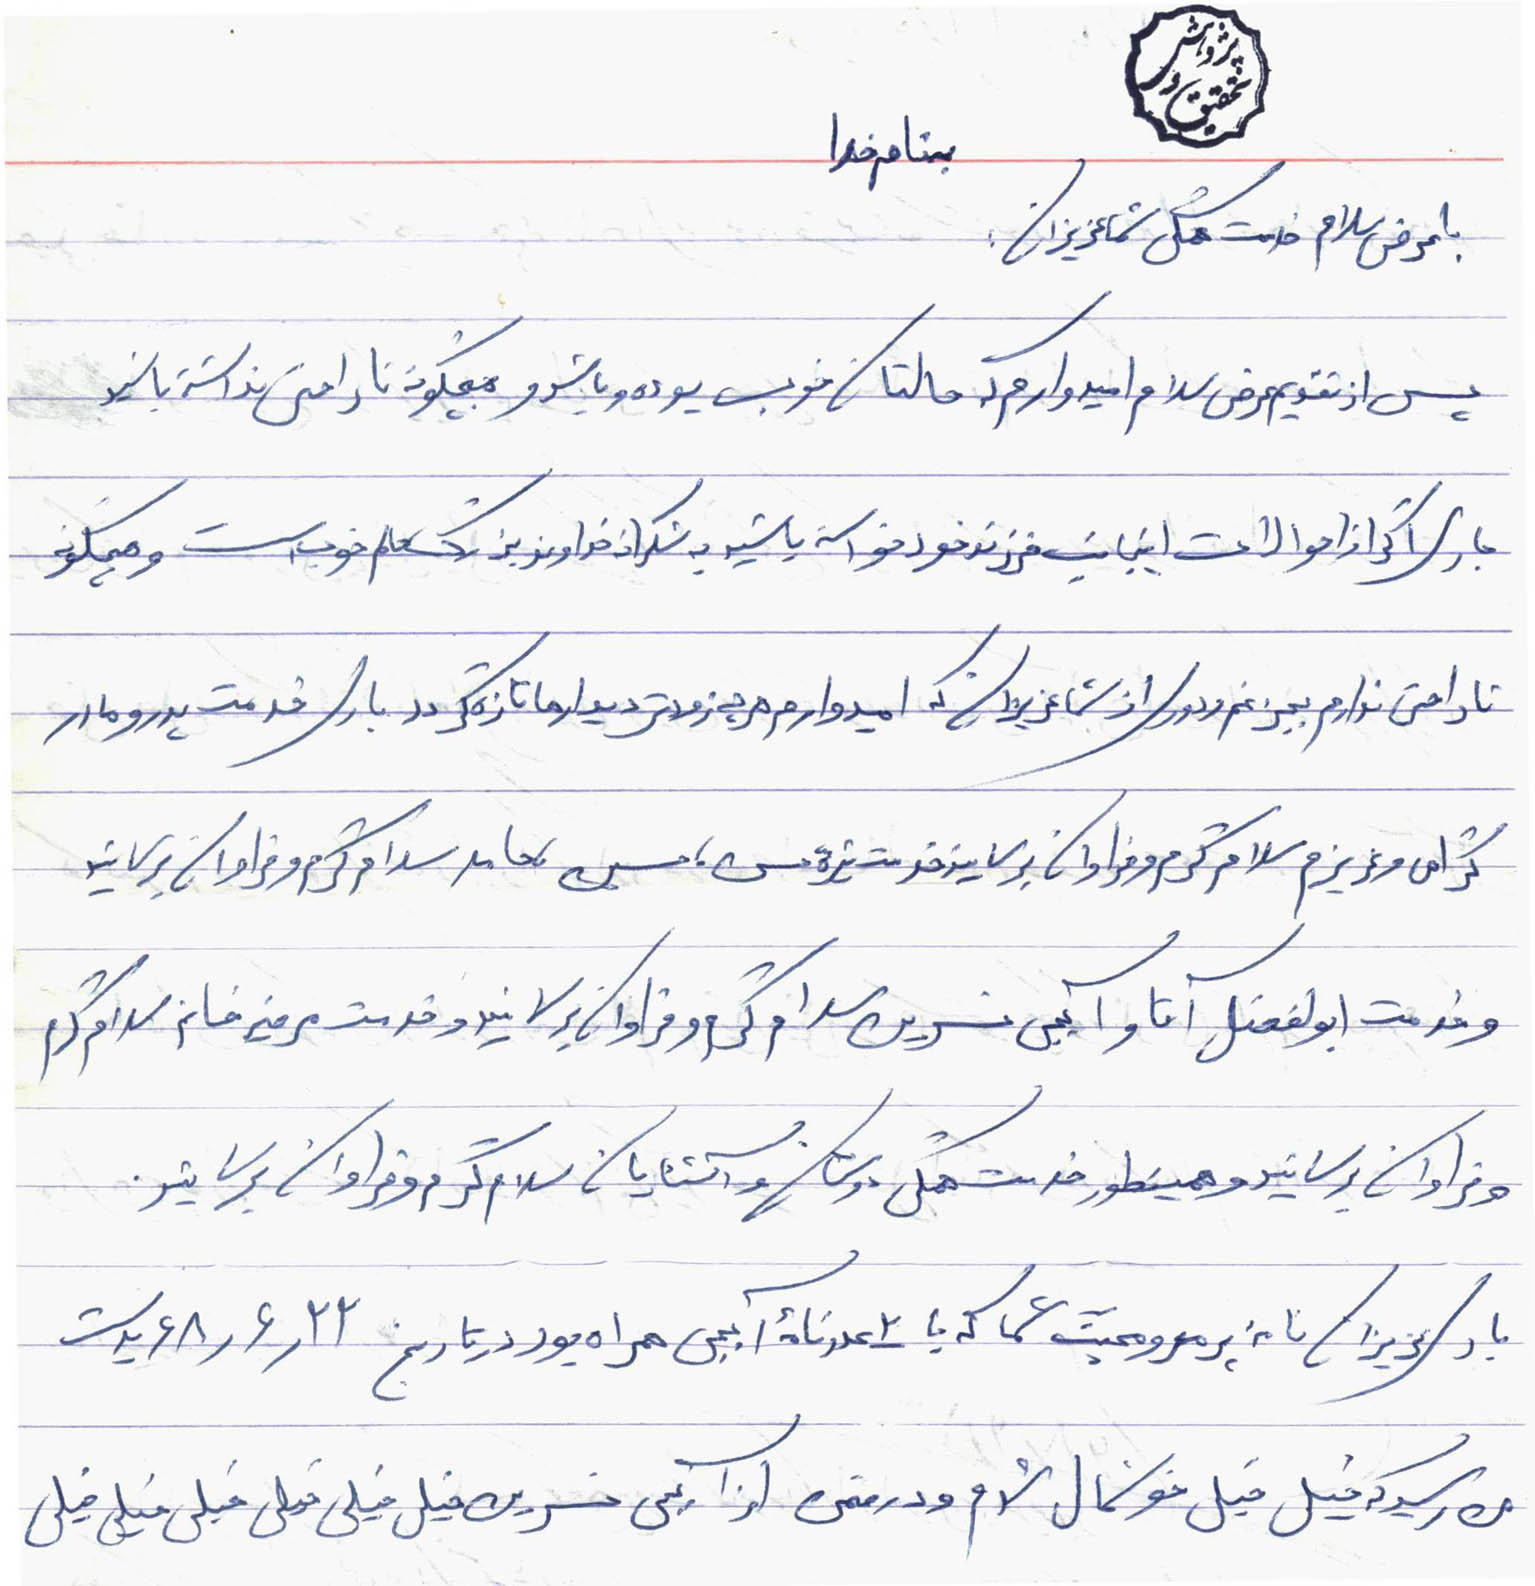 تحقیق و پژوهش
بنام خدا
با عرض سلام خدمت همگی شما عزیزان:
پس از تقدیم عرض سلام امیدوارم که حالتان خوب بوده و باشد و هیچگونه ناراحتی نداشته باشید
باری اگر از احوالات اینجانب فرزند خود خواسته باشید به شکرانه خداوند بزرگ حالم خوب است و هیچگونه
ناراحتی ندارم بجز غم و دوری از شما عزیزان که امیدوارم هرچه زودتر دیدارها تازه گردد باری خدمت پدر و مادر
گرامی و عزیزم سلام گرم و فراوان برسانید خدمت حسن، حسین، حامد سلام گرم و فراوان برسانید
و خدمت ابولفضل آقا و آبجی نسرین سلام گرم و فراوان برسانید و خدمت مرضیه خانم سلام گرم
و فراوان برسانید و همینطور خدمت همگی دوستان و آشنایان سلام گرم و فراوان برسانید.
باری عزیزان نامهٔ پر مهر و محبت شما که با ۲ عدد نامهٔ آبجی همراه بود در تاریخ ۲۲ر۶ر۶۸ بدست
من رسید که خیلی خیلی خوشحال شدم و در ضمن از آبجی نسرین خیلی خیلی خیلی خیلی خیلی خیلی